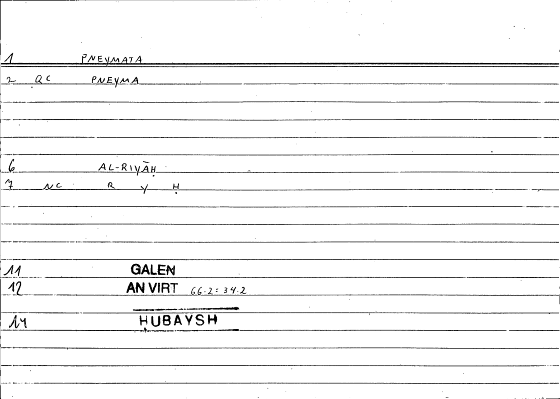 1 PNEYMATA
2 QC PNEYMA
6 AL-RIYĀḤ
7 NC R Y Ḥ
11 GALEN
12 AN VIRT 66.2:34.2
14 HUBAYSH